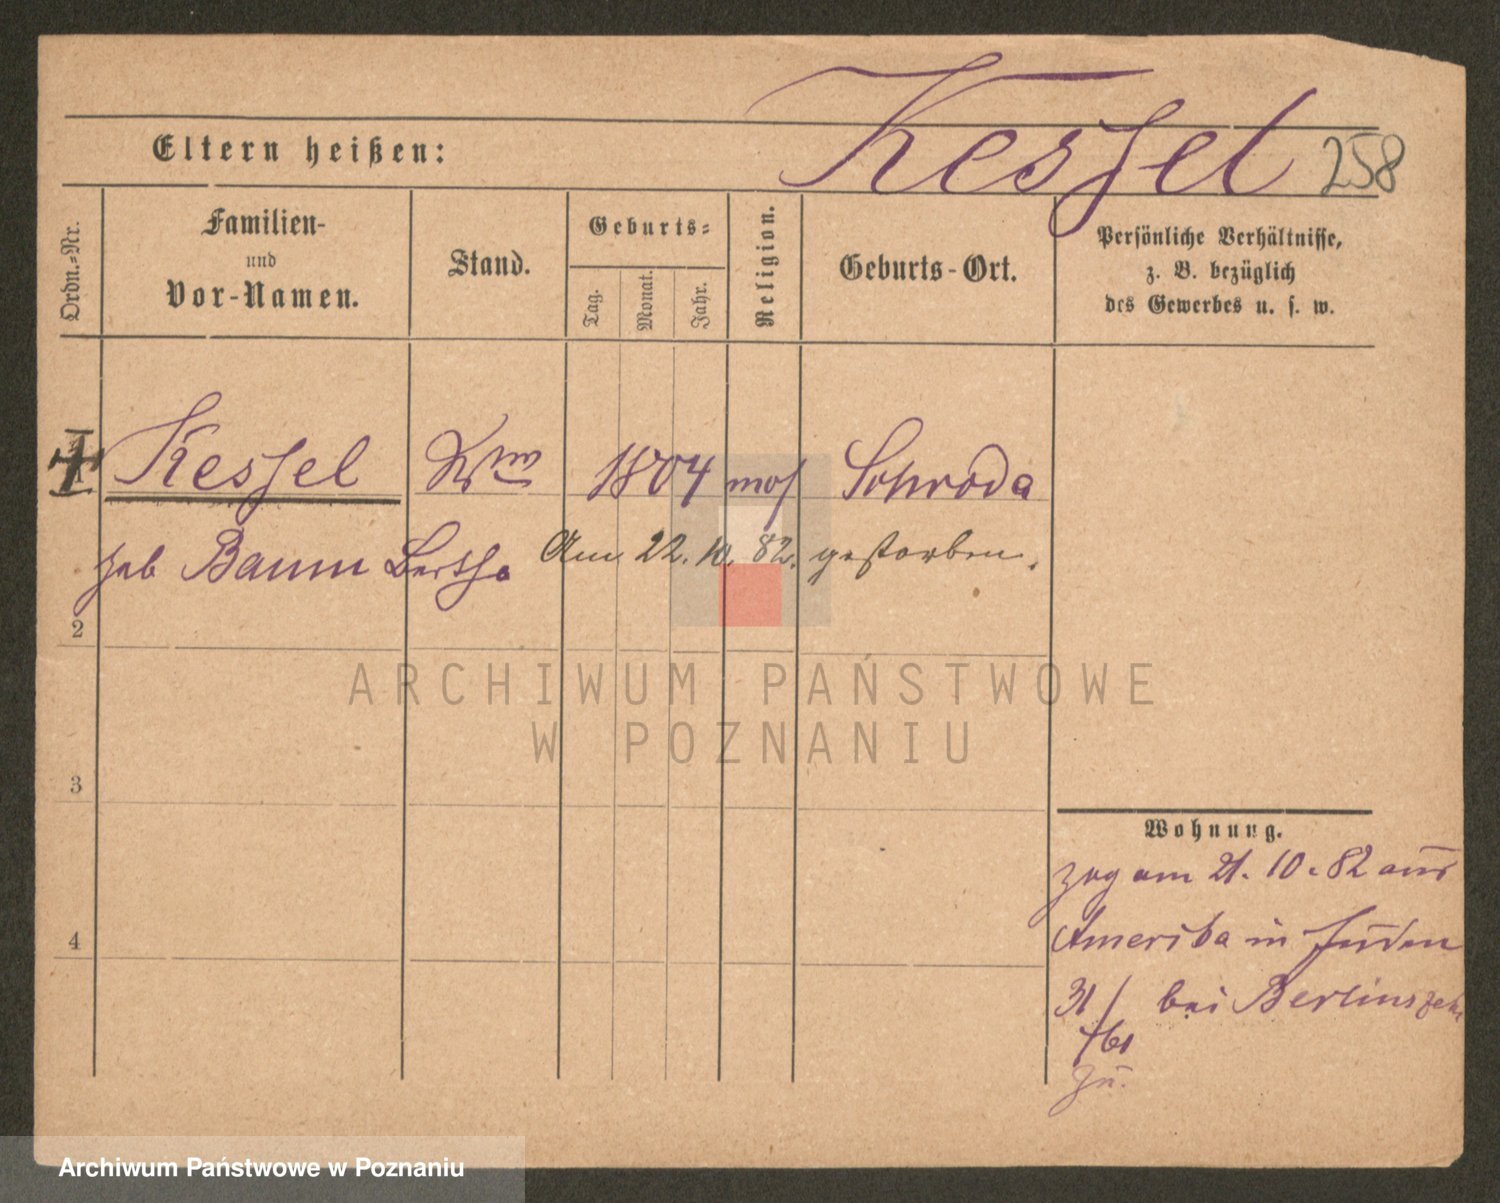 Kessel 258
Eltern heißen:
Ordn.=Nr.
Familien-
und
Vor-Namen.
Stand.
Geburts=
Tag.
Monat.
Jahr.
Religion.
Geburts-Ort.
Persönliche Verhältnisse,
z. B. bezüglich
des Gewerbes u. s. w.
1 Kessel Wwe 1804 mos Schroda
geb Baum Bertha Am 22. 10. 82. gestorben.
2
3
4
Wohnung.
zog am 21. 10. 82 aus
Amerika in
31/ bei
ARCHIWUM PAŃSTWOWE
W POZNANIU
Archiwum Państwowe w Poznaniu